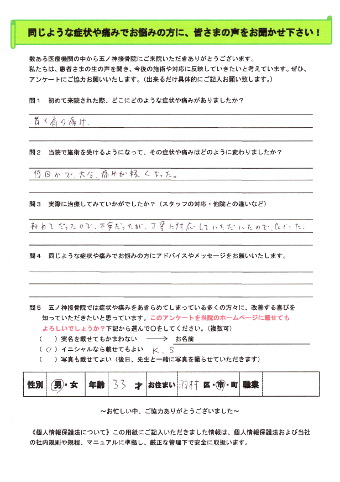 同じような症状や痛みでお悩みの方に、皆さまの声をお聞かせ下さい！
数ある医療機関の中から五ノ神接骨院にご来院いただきありがとうございます。
私たちは、患者さまの生の声を聞き、今後の施術や対応に反映していきたいと考えています。ぜひ、
アンケートにご協力お願いいたします。（出来るだけ具体的にご記入お願い致します。）
問1 初めて来院された際、どこにどのような症状や痛みがありましたか？
首と肩の痛み
問2 当院で施術を受けるようになって、その症状や痛みはどのように変わりましたか？
だいぶ痛みが軽くなった。
問3 実際に治療してみていかがでしたか？（スタッフの対応・他院との違いなど）
初めてだったので、不安だったが、丁寧に対応していただいたので良かった。
問4 同じような症状や痛みでお悩みの方にアドバイスやメッセージをお願いいたします。
問5 五ノ神接骨院では症状や痛みをあきらめてしまっている多くの方々に、改善する喜びを
知っていただきたいと思っています。このアンケートを当院のホームページに載せても
よろしいでしょうか？下記から選んで○をしてください。（複数可）
（ ）実名を載せてもかまわない → お名前
（○）イニシャルなら載せてもよい K.S
（ ）写真も載せてよい（後日、先生と一緒に写真を撮らせていただきます）
性別 男・女 年齢 33 才 お住まい 羽村 区・市・町 職業
～お忙しい中、ご協力ありがとうございました～
《個人情報保護法について》この用紙にご記入いただきました情報は、個人情報保護法および当社
の社内規則や規程、マニュアルに準拠し、厳正な管理下で安全に取扱います。